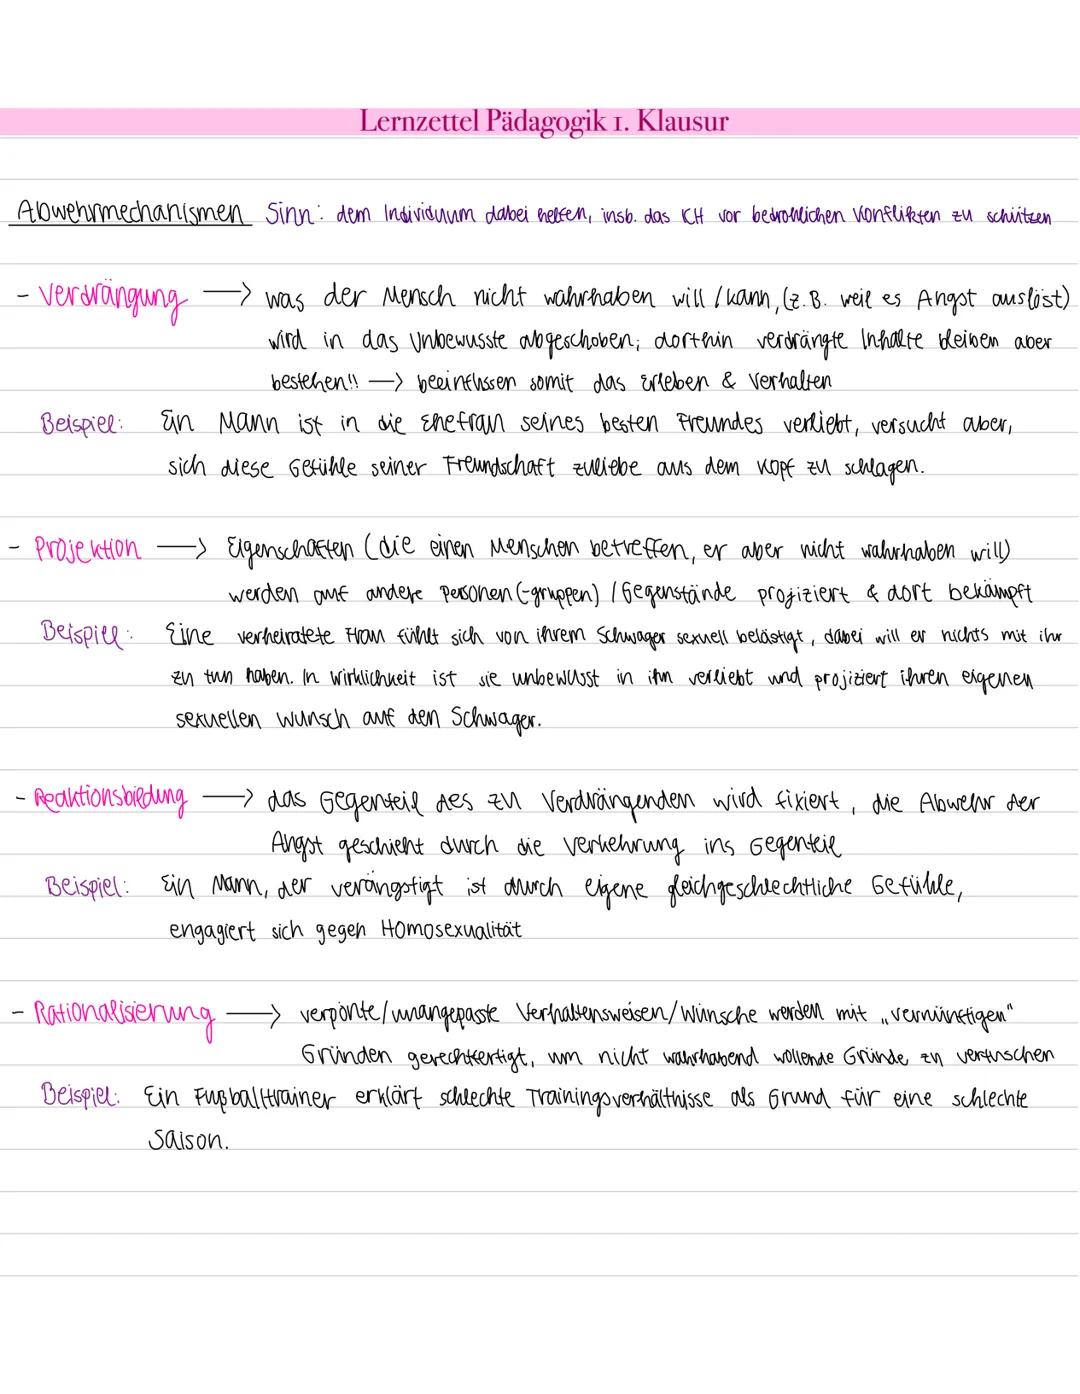 Lernzettel Pädagogik 1. Klausur
Abwehrmechanismen Sinn: dem Individuum dabei helfen, insb. das ICH vor bedrohlichen Konflikten zu schützen
- Verdrängung —> was der Mensch nicht wahrhaben will / kann, (z.B. weil es Angst auslöst)
wird in das Unbewusste abgeschoben; dorthin verdrängte Inhalte bleiben aber
bestehen!! —> beeinflussen somit das Erleben & Verhalten
Beispiel: Ein Mann ist in die Ehefrau seines besten Freundes verliebt, versucht aber,
sich diese Gefühle seiner Freundschaft zuliebe aus dem Kopf zu schlagen.
- Projektion —> Eigenschaften (die einen Menschen betreffen, er aber nicht wahrhaben will)
werden auf andere Personen (-gruppen) / Gegenstände projiziert & dort bekämpft
Beispiel: Eine verheiratete Frau fühlt sich von ihrem Schwager sexuell belästigt, dabei will er nichts mit ihr
zu tun haben. In Wirklichkeit ist sie unbewusst in ihn verliebt und projiziert ihren eigenen
sexuellen Wunsch auf den Schwager.
- Reaktionsbildung —> das Gegenteil des zu Verdrängenden wird fixiert, die Abwehr der
Angst geschieht durch die Verkehrung ins Gegenteil
Beispiel: Ein Mann, der verängstigt ist durch eigene gleichgeschlechtliche Gefühle,
engagiert sich gegen Homosexualität
- Rationalisierung —> verpönte/unangepasste Verhaltensweisen/Wünsche werden mit „vernünftigen"
Gründen gerechtfertigt, um nicht wahrhabend wollende Gründe zu vertuschen
Beispiel: Ein Fußballtrainer erklärt schlechte Trainingsverhältnisse als Grund für eine schlechte
Saison.